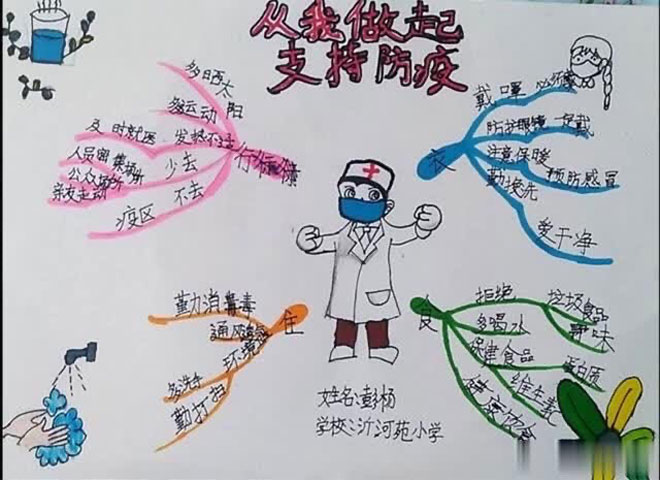 从我做起
支持防疫
多晒太阳
多运动
及时就医
发热不适
人员密集场所
公众场所
亲友走动
少去
疫区
不去
行
戴口罩
防护眼镜
一定戴
注意保暖
预防感冒
勤换洗
爱干净
衣
勤消毒
通风
环境
多洗手
勤打扫
住
食
拒绝
垃圾食品
野味
多喝水
保健食品
蛋白质
维生素
健康饮食
姓名:彭杨
学校:沂河苑小学